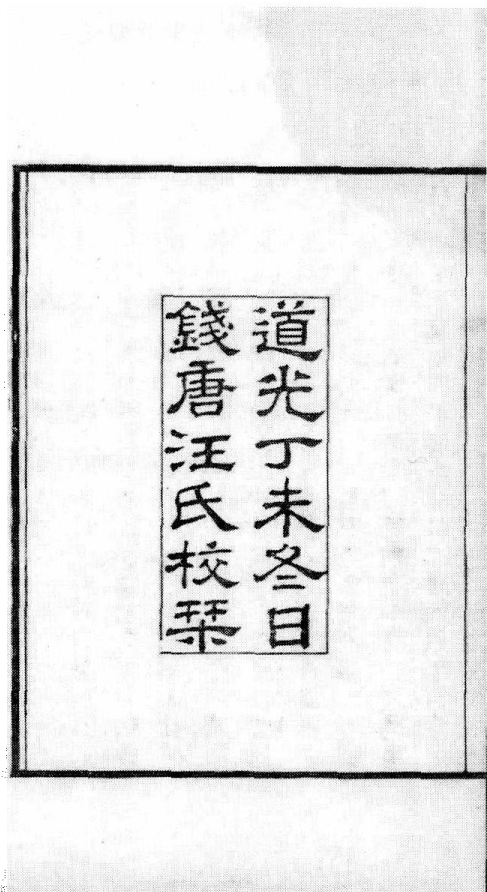 道光丁未冬日
錢唐汪氏校栞